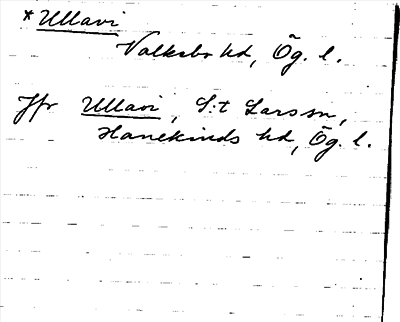 *Ullavi
Valkebo hd, Ög. l.
Jfr Ullavi, S:t Lars sn,
Hanekinds hd, Ög. l.